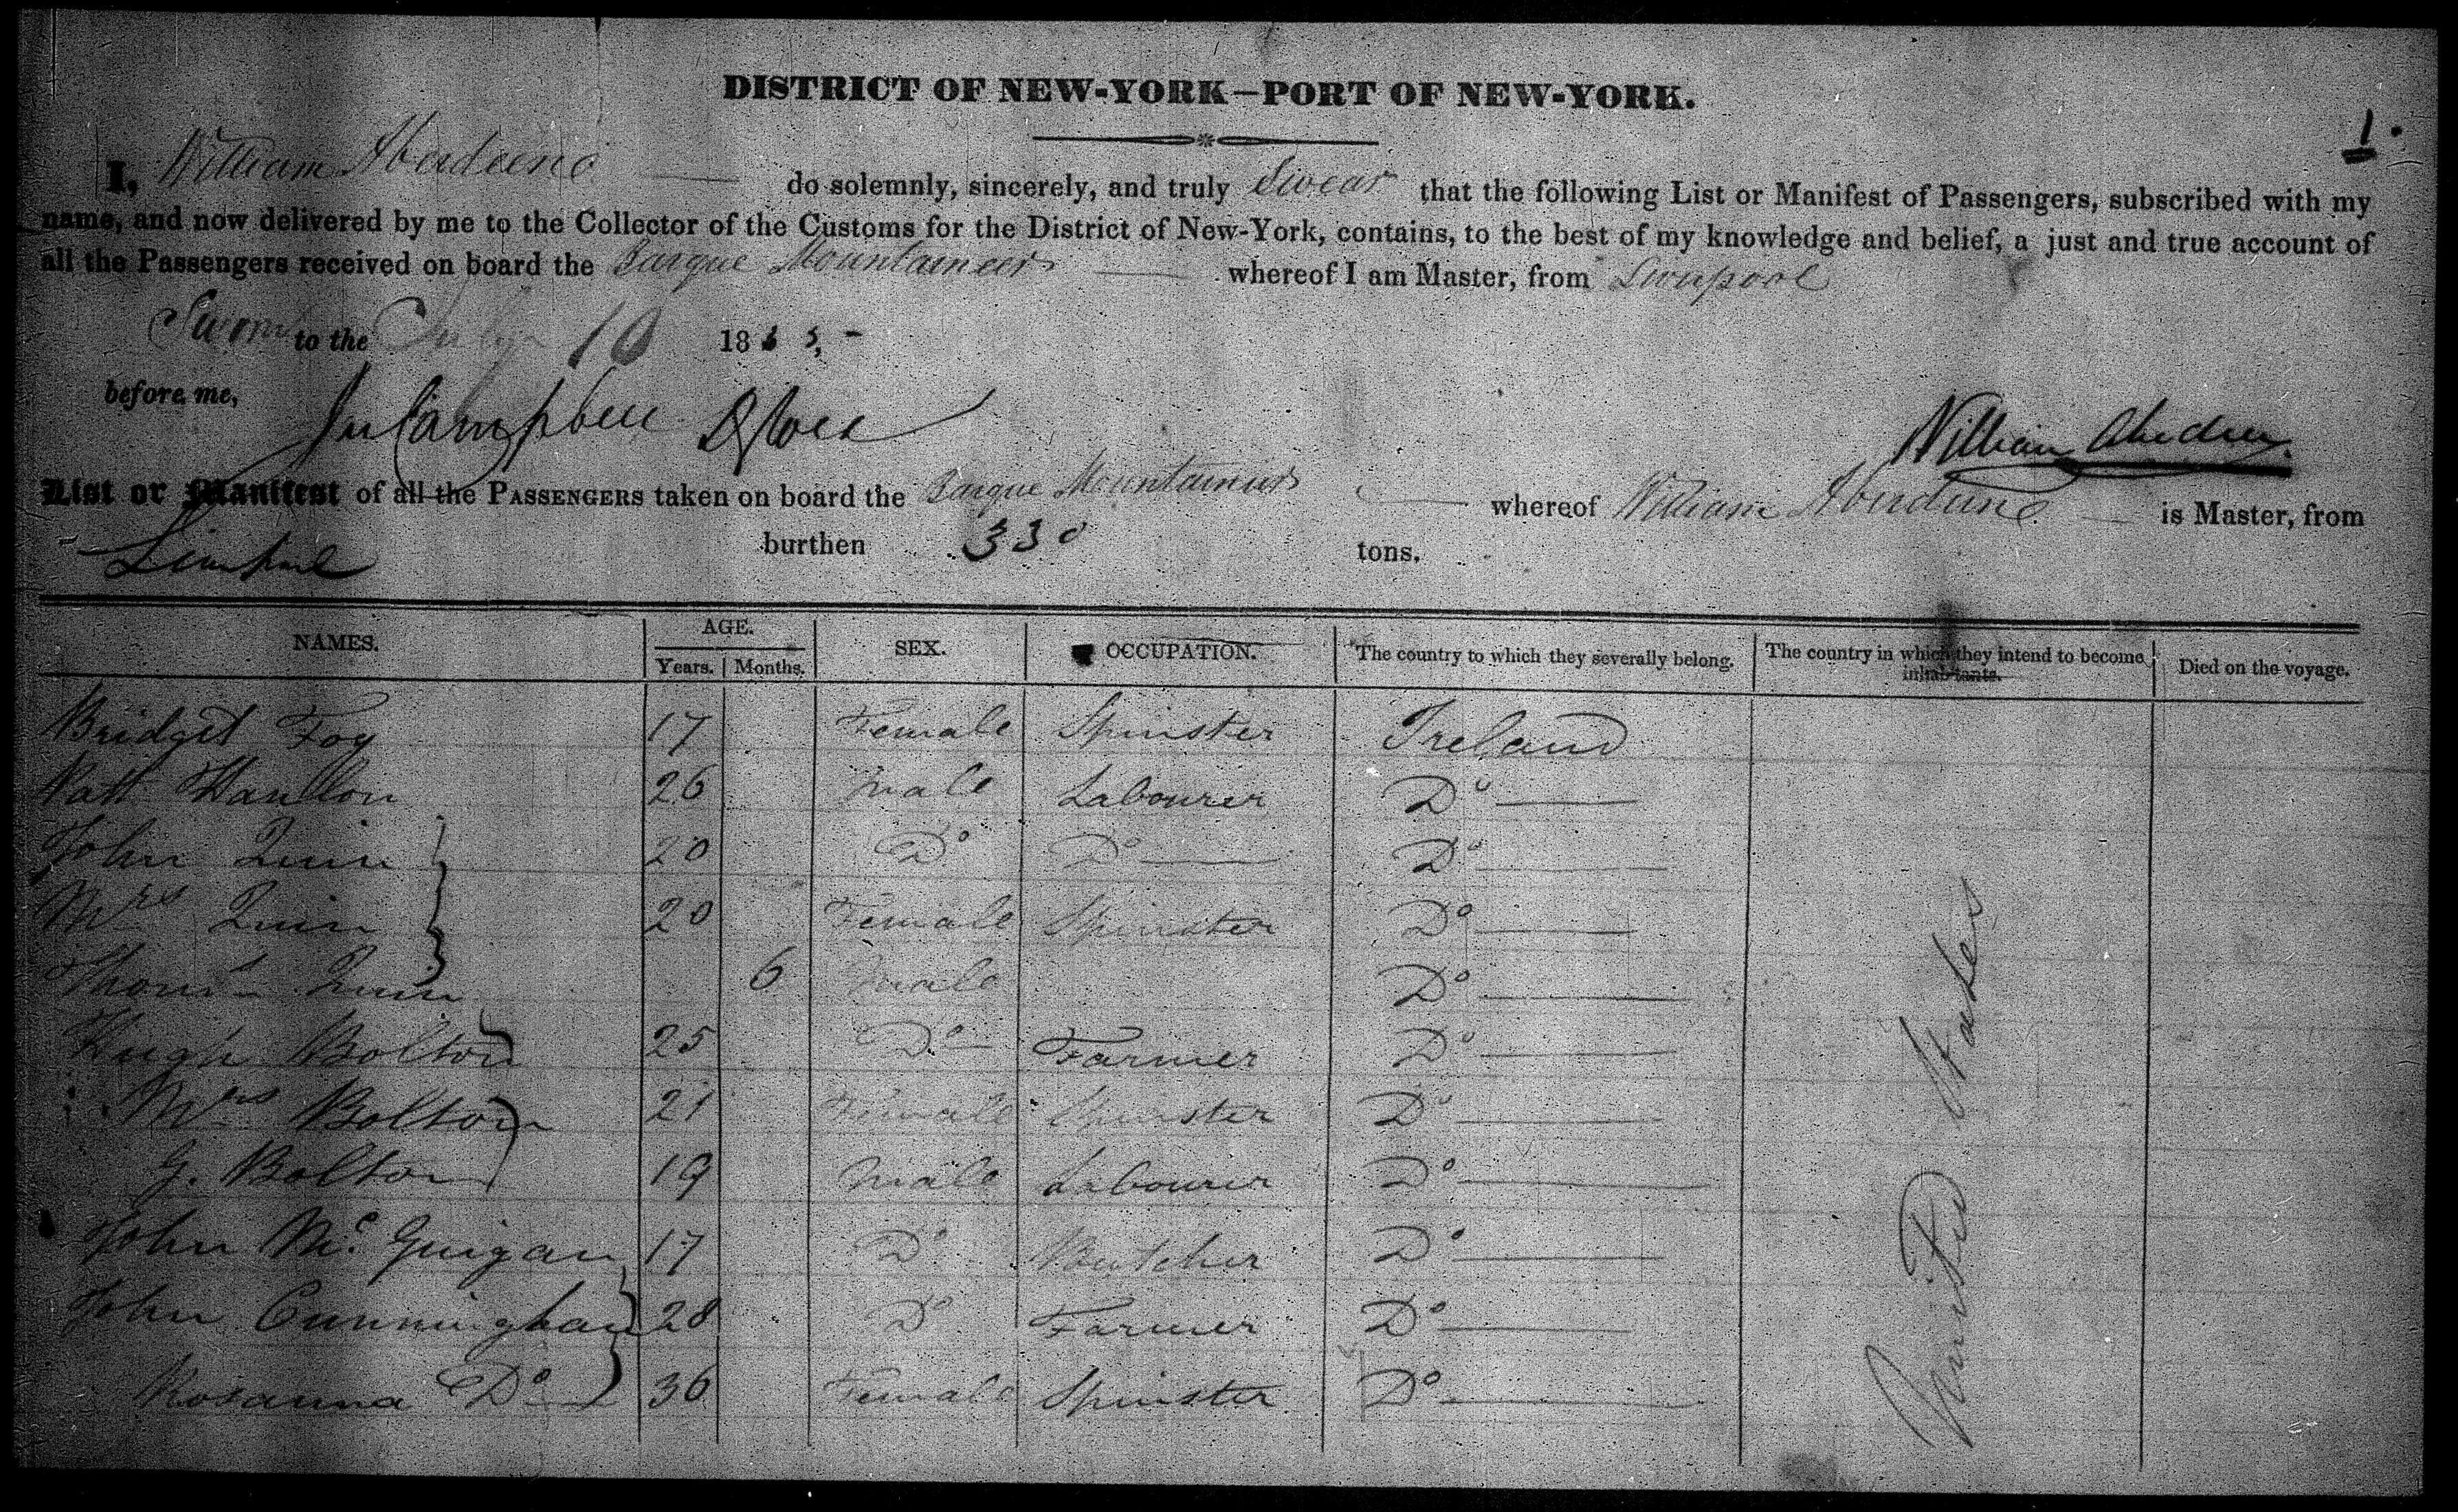 DISTRICT OF NEW-YORK—PORT OF NEW-YORK.
1.
I, William Aberdeene do solemnly, sincerely, and truly Swear that the following List or Manifest of Passengers, subscribed with my
name, and now delivered by me to the Collector of the Customs for the District of New-York, contains, to the best of my knowledge and belief, a just and true account of
all the Passengers received on board the Barque Mountaineer whereof I am Master, from Liverpool
Sworn to the July 10 18
before me, Campbell
William Aberdeen
List or Manifest of all the PASSENGERS taken on board the Barque Mountaineer whereof William Aberdeene is Master, from
Liverpool burthen 330 tons.
NAMES. AGE. SEX. OCCUPATION. The country to which they severally belong. The country in which they intend to become inhabitants. Died on the voyage.
Years. Months.
Bridget Foy 17 Female Spinster Ireland
Patt Hanllon 26 Male Labourer Do
John Quin 20 Do Do Do
Mrs Quin 20 Female Spinster Do
Thoms Quin 6 Male Do
Hugh Bolton 25 Do Farmer Do
Mrs Bolton 21 Female Spinster Do
G. Bolton 19 Male Labourer Do
John Mc Guigan 17 Do Butcher Do
John Cunningham 28 Do Farmer Do
Rosanna Do 36 Female Spinster Do
United States